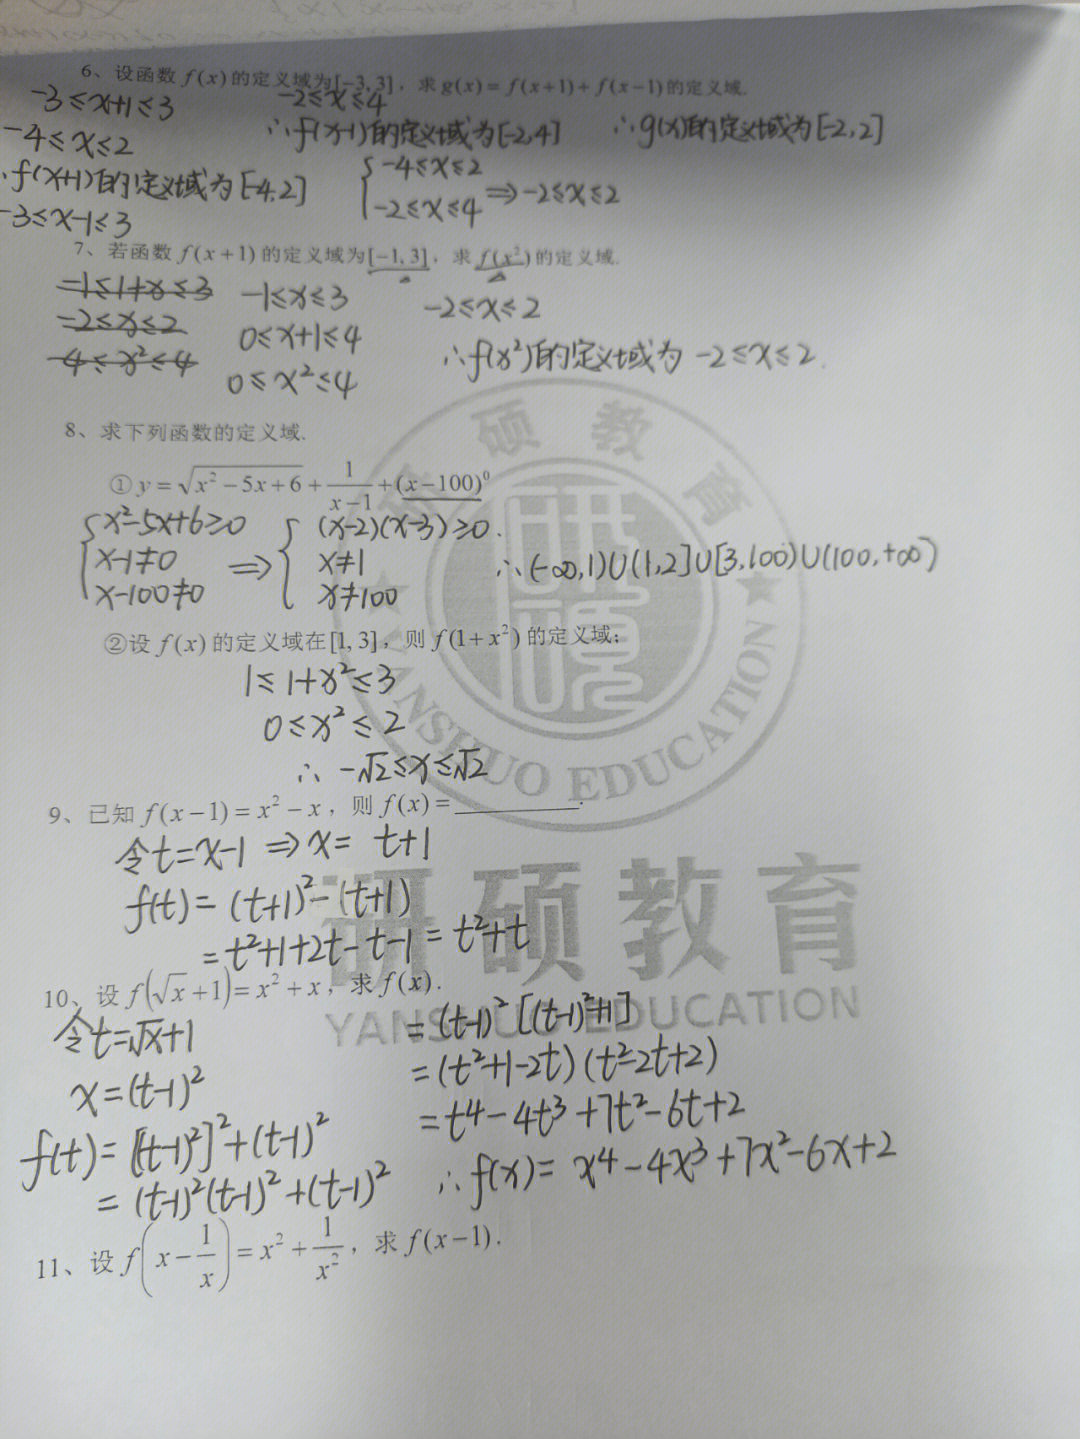 6、设函数 f(x) 的定义域为[-3,3]，求 g(x) = f(x+1) + f(x-1) 的定义域.
-3≤x+1≤3
-4≤x≤2
∴f(x+1)的定义域为[-4,2]
-3≤x-1≤3
-2≤x≤4
∴f(x-1)的定义域为[-2,4]
{-4≤x≤2
-2≤x≤4 ⇒ -2≤x≤2
∴g(x)的定义域为[-2,2]
7、若函数 f(x+1) 的定义域为[-1,3]，求 f(x²) 的定义域.
-1≤1+x≤3
-2≤x≤2
4≤x²≤4
-1≤x≤3
0≤x+1≤4
0≤x²≤4
-2≤x≤2
∴f(x²)的定义域为 -2≤x≤2.
8、求下列函数的定义域.
① y = √(x²-5x+6) + 1/(x-1) + (x-100)⁰
{x²-5x+6≥0
x-1≠0
x-100≠0
⇒ {(x-2)(x-3)≥0.
x≠1
x≠100
∴(-∞,1)∪(1,2]∪[3,100)∪(100,+∞)
②设 f(x) 的定义域在[1,3]，则 f(1+x²) 的定义域;
1≤1+x²≤3
0≤x²≤2
∴ -√2≤x≤√2
9、已知 f(x-1) = x²-x，则 f(x) = ________.
令t=x-1 ⇒ x= t+1
f(t) = (t+1)²-(t+1)
= t²+1+2t-t-1 = t²+t
10、设 f(√x+1) = x²+x，求 f(x).
令t=√x+1
x=(t-1)²
f(t) = [(t-1)²]²+(t-1)²
= (t-1)²(t-1)²+(t-1)²
= (t-1)²[(t-1)²+1]
= (t²+1-2t)(t²-2t+2)
= t⁴-4t³+7t²-6t+2
∴f(x) = x⁴-4x³+7x²-6x+2
11、设 f(x - 1/x) = x² + 1/x²，求 f(x-1).
研硕教育
YANSHUO EDUCATION
研硕教育
YANSHUO EDUCATION